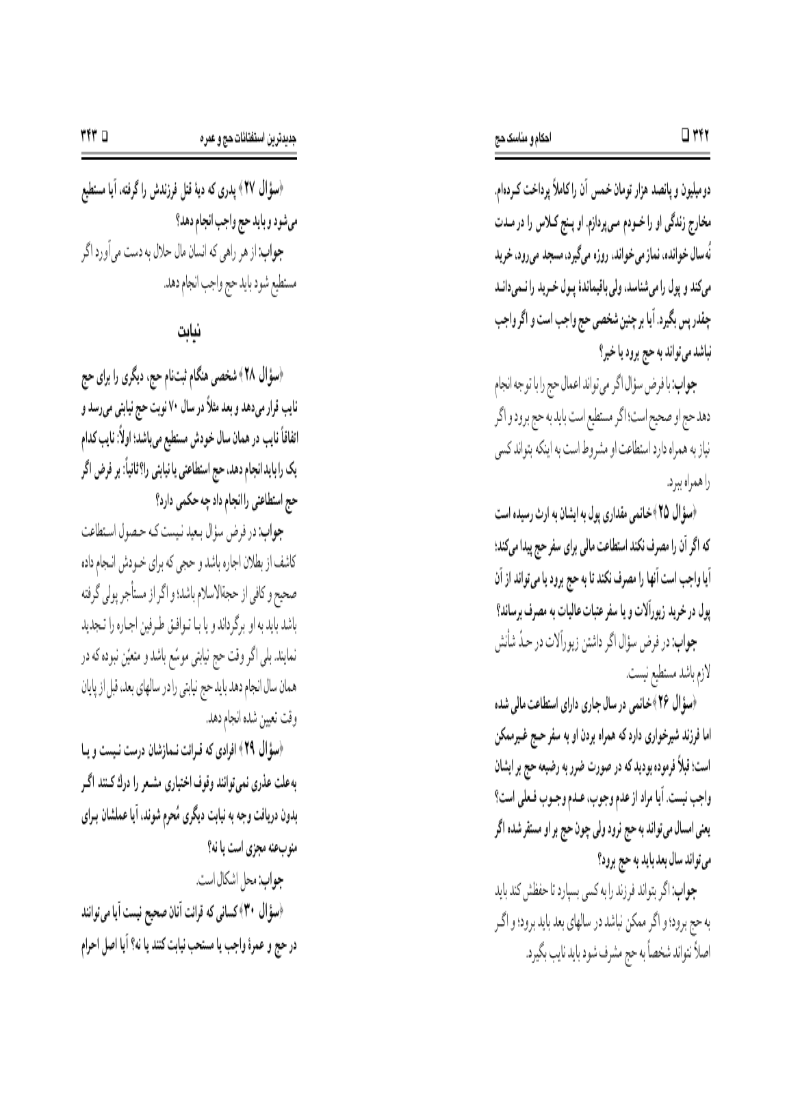 ۳۴۲ ❑ احکام و مناسک حج
دو میلیون و پانصد هزار تومان خمس آن را کاملاً پرداخت کرده‌ام.
مخارج زندگی او را خـودم مـی‌پردازم. او پـنج کـلاس را در مـدت
نُه سال خوانده، نماز می‌خواند، روزه می‌گیرد، مسجد می‌رود، خرید
می‌کند و پول را می‌شناسد، ولی باقیماندهٔ پـول خـرید را نـمی‌دانـد
چقدر پس بگیرد. آیا بر چنین شخصی حج واجب است و اگر واجب
نباشد می‌تواند به حج برود یا خیر؟
جواب: با فرض سؤال اگر می‌تواند اعمال حج را با توجه انجام
دهد حج او صحیح است؛ اگر مستطیع است باید به حج برود و اگر
نیاز به همراه دارد استطاعت او مشروط است به اینکه بتواند کسی
را همراه ببرد.
﴿سؤال ۲۵﴾ خانمی مقداری پول به ایشان به ارث رسیده است
که اگر آن را مصرف نکند استطاعت مالی برای سفر حج پیدا می‌کند؛
آیا واجب است آنها را مصرف نکند تا به حج برود یا می‌تواند از آن
پول در خرید زیورآلات و یا سفر عتبات عالیات به مصرف برساند؟
جواب: در فرض سؤال اگر داشتن زیورآلات در حـدّ شأنش
لازم باشد مستطیع نیست.
﴿سؤال ۲۶﴾ خانمی در سال جاری دارای استطاعت مالی شده
اما فرزند شیرخواری دارد که همراه بردن او به سفر حـج غیرممکن
است؛ قبلاً فرموده بودید که در صورت ضرر به رضیعه حج بر ایشان
واجب نیست. آیا مراد از عدم وجوب، عـدم وجـوب فـعلی است؟
یعنی امسال می‌تواند به حج نرود ولی چون حج بر او مستقر شده اگر
می‌تواند سال بعد باید به حج برود؟
جواب: اگر بتواند فرزند را به کسی بسپارد تا حفظش کند باید
به حج برود؛ و اگر ممکن نباشد در سالهای بعد باید برود؛ و اگـر
اصلاً نتواند شخصاً به حج مشرف شود باید نایب بگیرد.
جدیدترین استفتائات حج و عمره ❑ ۳۴۳
﴿سؤال ۲۷﴾ پدری که دیهٔ قتل فرزندش را گرفته، آیا مستطیع
می‌شود و باید حج واجب انجام دهد؟
جواب: از هر راهی که انسان مال حلال به دست می‌آورد اگر
مستطیع شود باید حج واجب انجام دهد.
نیابت
﴿سؤال ۲۸﴾ شخصی هنگام ثبت‌نام حج، دیگری را برای حج
نایب قرار می‌دهد و بعد مثلاً در سال ۷۰ نوبت حج نیابتی می‌رسد و
اتفاقاً نایب در همان سال خودش مستطیع می‌باشد؛ اولاً: نایب کدام
یک را باید انجام دهد، حج استطاعتی یا نیابتی را؟ ثانیاً: بر فرض اگر
حج استطاعتی را انجام داد چه حکمی دارد؟
جواب: در فرض سؤال بـعید نـیست کـه حـصول اسـتطاعت
کاشف از بطلان اجاره باشد و حجی که برای خـودش انـجام داده
صحیح و کافی از حجةالاسلام باشد؛ و اگر از مستأجر پولی گرفته
باشد باید به او برگرداند و یا بـا تـوافـق طـرفین اجـاره را تـجدید
نمایند. بلی اگر وقت حج نیابتی موسّع باشد و متعیّن نبوده که در
همان سال انجام دهد باید حج نیابتی را در سالهای بعد، قبل از پایان
وقت تعیین شده انجام دهد.
﴿سؤال ۲۹﴾ افرادی که قـرائت نـمازشان درست نـیست و یـا
به علت عذری نمی‌توانند وقوف اختیاری مشـعر را درك کـنند اگـر
بدون دریافت وجه به نیابت دیگری مُحرم شوند، آیا عملشان بـرای
منوب‌عنه مجزی است یا نه؟
جواب: محل اشکال است.
﴿سؤال ۳۰﴾ کسانی که قرائت آنان صحیح نیست آیا می‌توانند
در حج و عمرهٔ واجب یا مستحب نیابت کنند یا نه؟ آیا اصل احرام